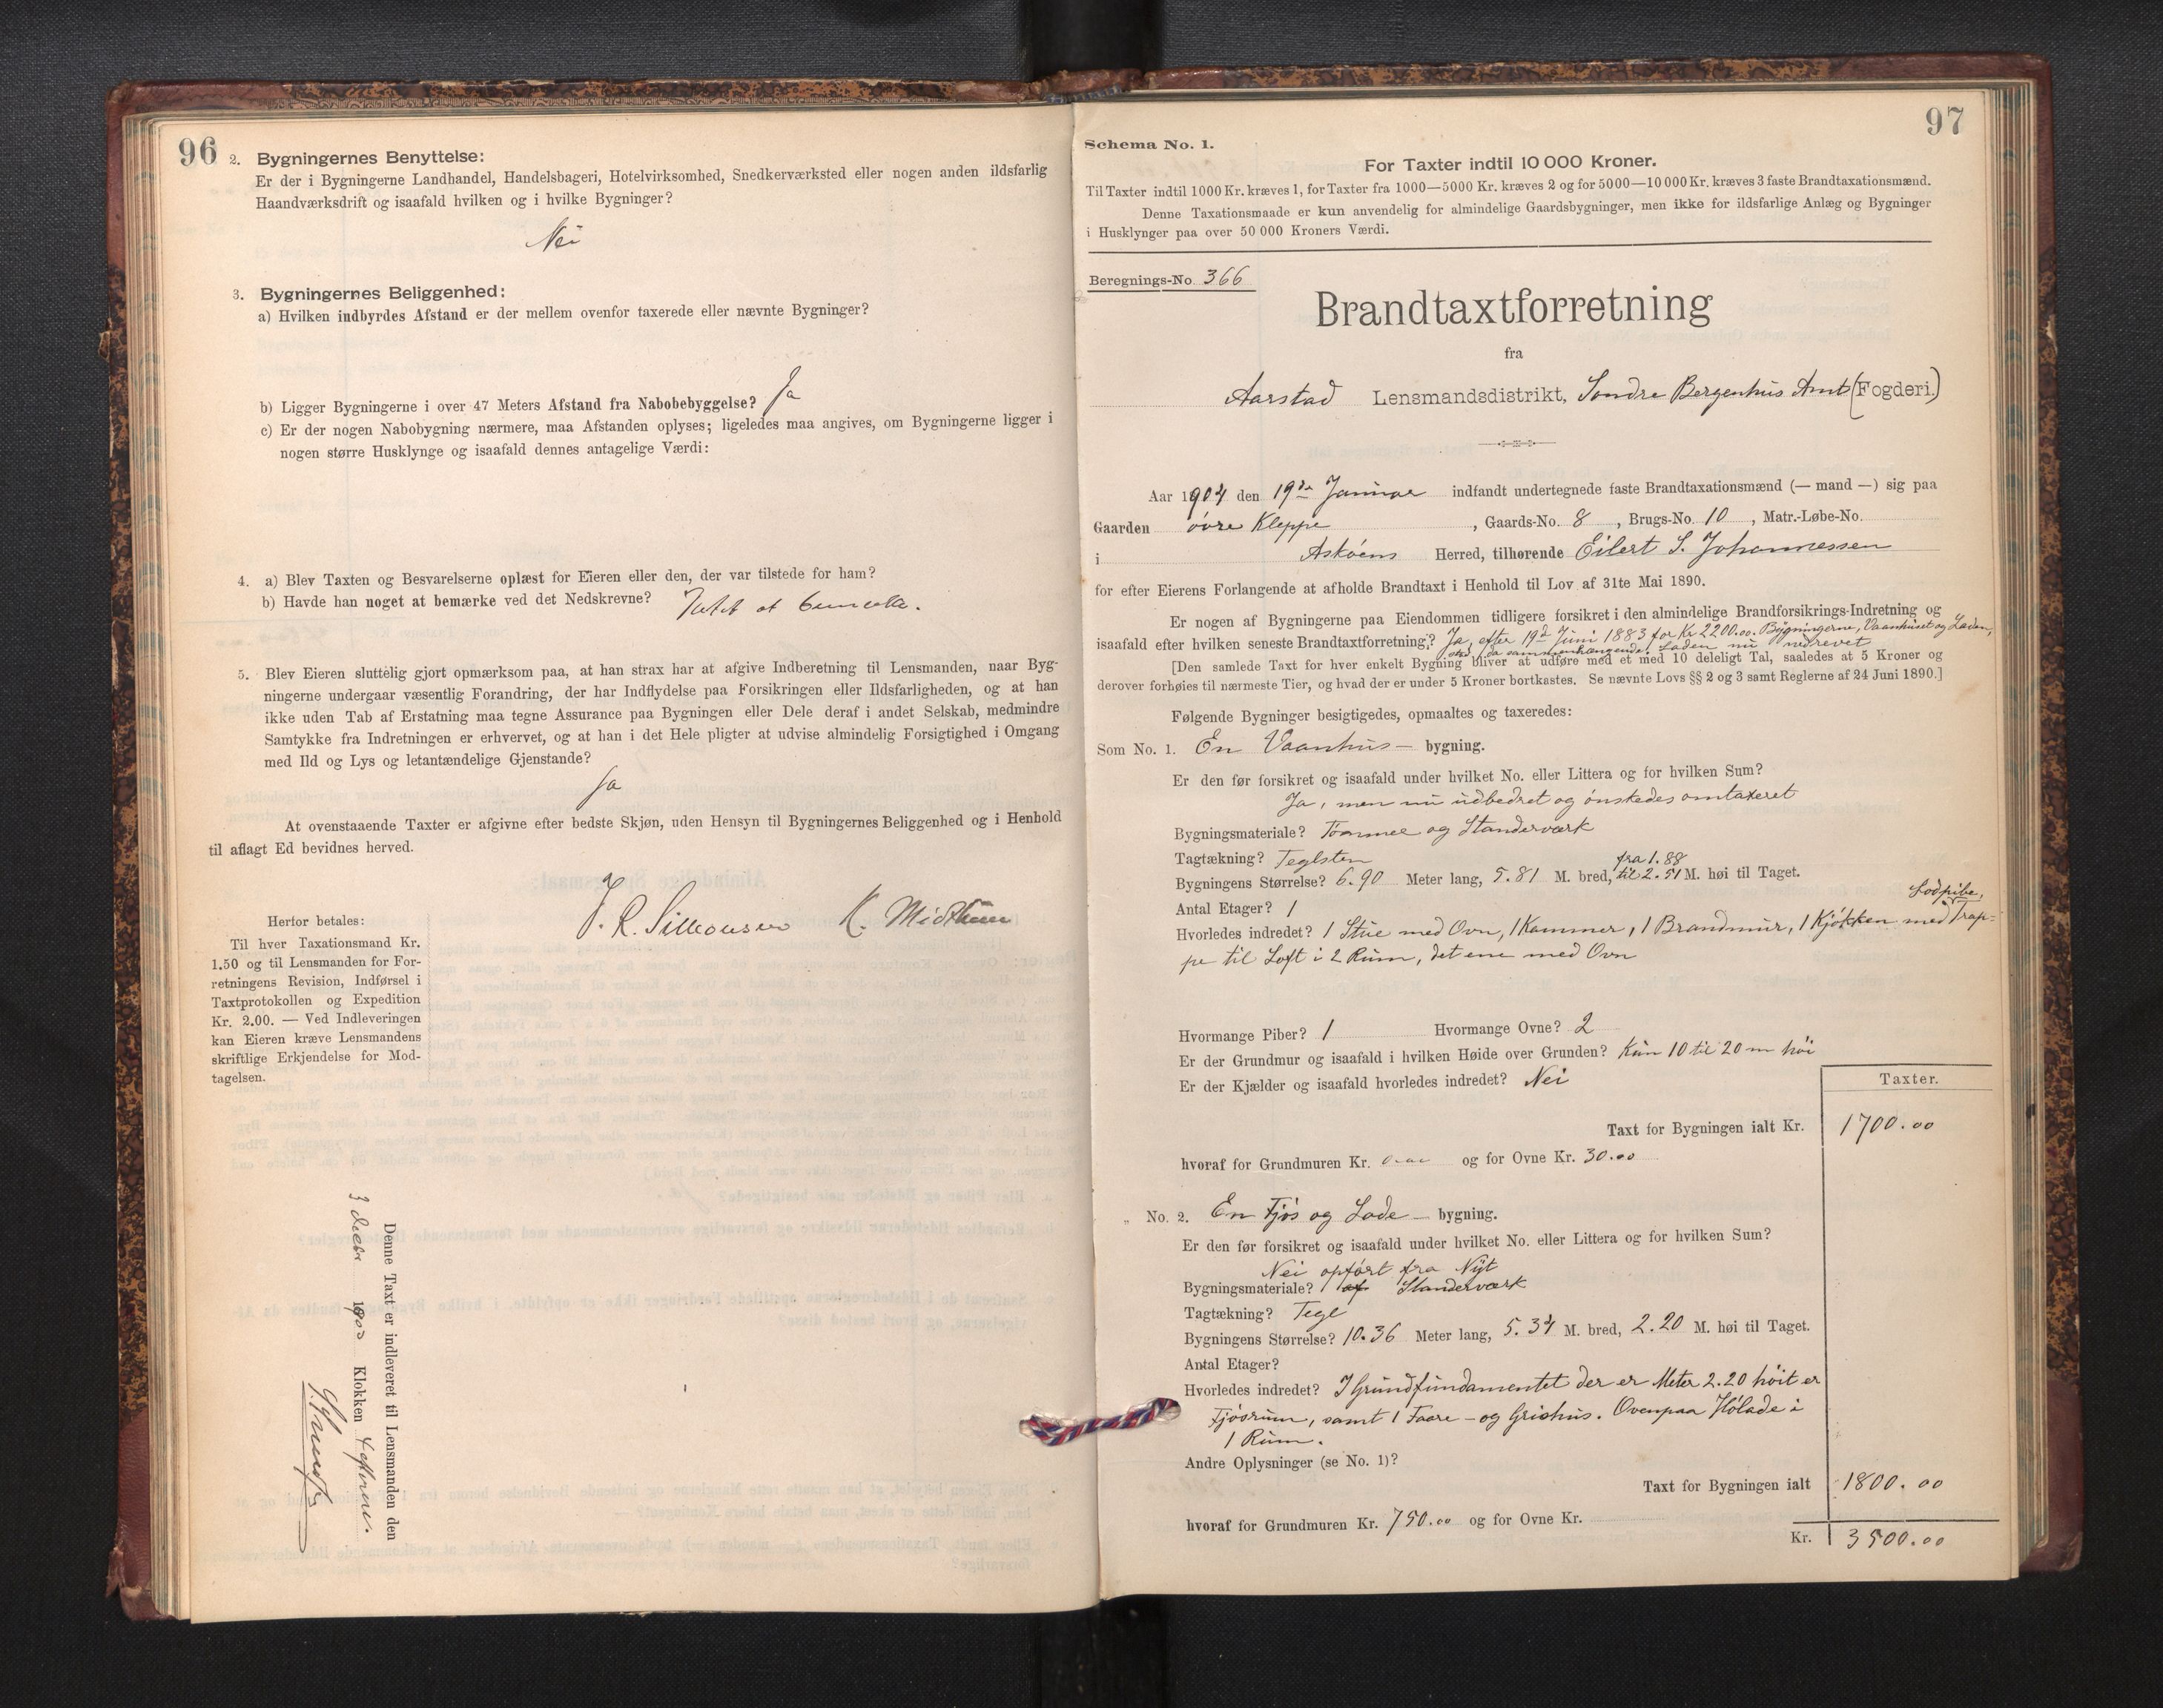 96
2. Bygningernes Benyttelse:
Er der i Bygningerne Landhandel, Handelsbageri, Hotelvirksomhed, Snedkerværksted eller nogen anden ildsfarlig
Haandværksdrift og isaafald hvilken og i hvilke Bygninger?
Nei
3. Bygningernes Beliggenhed:
a) Hvilken indbyrdes Afstand er der mellem ovenfor taxerede eller nævnte Bygninger?
b) Ligger Bygningerne i over 47 Meters Afstand fra Nabobebyggelse? Ja
c) Er der nogen Nabobygning nærmere, maa Afstanden oplyses; ligeledes maa angives, om Bygningerne ligger i
nogen større Husklynge og isaafald dennes antagelige Værdi:
4. a) Blev Taxten og Besvarelserne oplæst for Eieren eller den, der var tilstede for ham?
b) Havde han noget at bemærke ved det Nedskrevne? Intet at bemærke.
5. Blev Eieren sluttelig gjort opmærksom paa, at han strax har at afgive Indberetning til Lensmanden, naar Byg-
ningerne undergaar væsentlig Forandring, der har Indflydelse paa Forsikringen eller Ildsfarligheden, og at han
ikke uden Tab af Erstatning maa tegne Assurance paa Bygningen eller Dele deraf i andet Selskab, medmindre
Samtykke fra Indretningen er erhvervet, og at han i det Hele pligter at udvise almindelig Forsigtighed i Omgang
med Ild og Lys og letantændelige Gjenstande?
Ja
At ovenstaaende Taxter er afgivne efter bedste Skjøn, uden Hensyn til Bygningernes Beliggenhed og i Henhold
til aflagt Ed bevidnes herved.
K. Midthun
Herfor betales:
Til hver Taxationsmand Kr.
1.50 og til Lensmanden for For-
retningens Revision, Indførsel i
Taxtprotokollen og Expedition
Kr. 2.00. — Ved Indleveringen
kan Eieren kræve Lensmandens
skriftlige Erkjendelse for Mod-
tagelsen.
Denne Taxt er indleveret til Lensmanden den
3 Decbr 1903 Klokken 4 efterm.
97
Schema No. 1.
For Taxter indtil 10 000 Kroner.
Til Taxter indtil 1000 Kr. kræves 1, for Taxter fra 1000—5000 Kr. kræves 2 og for 5000—10 000 Kr. kræves 3 faste Brandtaxationsmænd.
Denne Taxationsmaade er kun anvendelig for almindelige Gaardsbygninger, men ikke for ildsfarlige Anlæg og Bygninger
i Husklynger paa over 50 000 Kroners Værdi.
Beregnings-No. 366
Brandtaxtforretning
fra
Aarstad Lensmandsdistrikt, Søndre Bergenhus Amt (Fogderi.)
Aar 1904 den 19de Januar indfandt undertegnede faste Brandtaxationsmænd (— mand —) sig paa
Gaarden øvre Kleppe, Gaards-No. 8, Brugs-No. 10, Matr.-Løbe-No.
i Askøens Herred, tilhørende Eilert S. Johannessen
for efter Eierens Forlangende at afholde Brandtaxt i Henhold til Lov af 31te Mai 1890.
Er nogen af Bygningerne paa Eiendommen tidligere forsikret i den almindelige Brandforsikrings-Indretning og
isaafald efter hvilken seneste Brandtaxtforretning? Ja, efter 19de Juni 1883 for Kr 2200.00. Bygningerne, Vaanhuset og Laden,
da sammenhængende, Laden nu nedrevet
[Den samlede Taxt for hver enkelt Bygning bliver at udføre med et med 10 deleligt Tal, saaledes at 5 Kroner og
derover forhøies til nærmeste Tier, og hvad der er under 5 Kroner bortkastes. Se nævnte Lovs §§ 2 og 3 samt Reglerne af 24 Juni 1890.]
Følgende Bygninger besigtigedes, opmaaltes og taxeredes:
Som No. 1. En Vaanhus — bygning.
Er den før forsikret og isaafald under hvilket No. eller Littera og for hvilken Sum?
Ja, men nu udbedret og ønskedes omtaxeret
Bygningsmateriale? Tømmer og Standerværk
Tagtækning? Teglsten
fra 1.88
Bygningens Størrelse? 6.90 Meter lang, 5.81 M. bred, til 2.51 M. høi til Taget.
Antal Etager? 1
Lodpibe,
Hvorledes indredet? 1 Stue med Ovn, 1 Kammer, 1 Brandmur, 1 Kjøkken med Trap-
pe til Loft i 2 Rum, det ene med Ovn
Hvormange Piber? 1 Hvormange Ovne? 2
Er der Grundmur og isaafald i hvilken Høide over Grunden? Kun 10 til 20 m høi
Er der Kjælder og isaafald hvorledes indredet? Nei
Taxter.
Taxt for Bygningen ialt Kr. 1700.00
hvoraf for Grundmuren Kr. og for Ovne Kr. 30.00
„ No. 2. En Fjøs og Lade — bygning.
Er den før forsikret og isaafald under hvilket No. eller Littera og for hvilken Sum?
Nei opført fra Nyt
Bygningsmateriale? af Standerværk
Tagtækning? Tegl
Bygningens Størrelse? 10.36 Meter lang, 5.34 M. bred, 2.20 M. høi til Taget.
Antal Etager?
Hvorledes indredet? I Grundfundamentet der er Meter 2.20 høit er
Fjøsrum, samt 1 Faare- og Grishus. Ovenpaa Hølade i
1 Rum.
Andre Oplysninger (se No. 1)?
Taxt for Bygningen ialt 1800.00
hvoraf for Grundmuren Kr. 750.00 og for Ovne Kr.
Kr. 3500.00